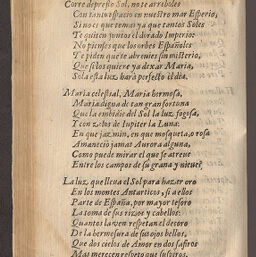 Corre depresso Sol, no te arreboles
Con tanto espacio en nuestro mar Esperio,
Sino es que temes ya que tantos Soles
Te quiten juntos el dorado Imperio:
No pienses que los orbes Españoles
Te piden que te abrevies sin misterio,
Que si los quiere ya dexar Maria,
Sola esta luz harà perfeto el dia.
Maria celestial, Maria hermosa,
Maria digna de tan gran fortuna
Que la embidie del Sol la luz fogosa,
Y con zelos de Iupiter la Luna:
En que jazmin, en que mosqueta, o rosa
Amaneciò jamas Aurora alguna,
Como puede mirar el que se atreue
Entre los campos de su grana y nieue?
La luz, que lleua el Sol para hazer oro
En los montes Antarticos, si a ellos
Parte de España, por mayor tesoro
La toma de sus rizos y cabellos:
Quantos la ven respetan el decoro
De la hermosura de sus ojos bellos,
Que dos cielos de Amor en dos safiros
Mas merecen respeto que suspiros.